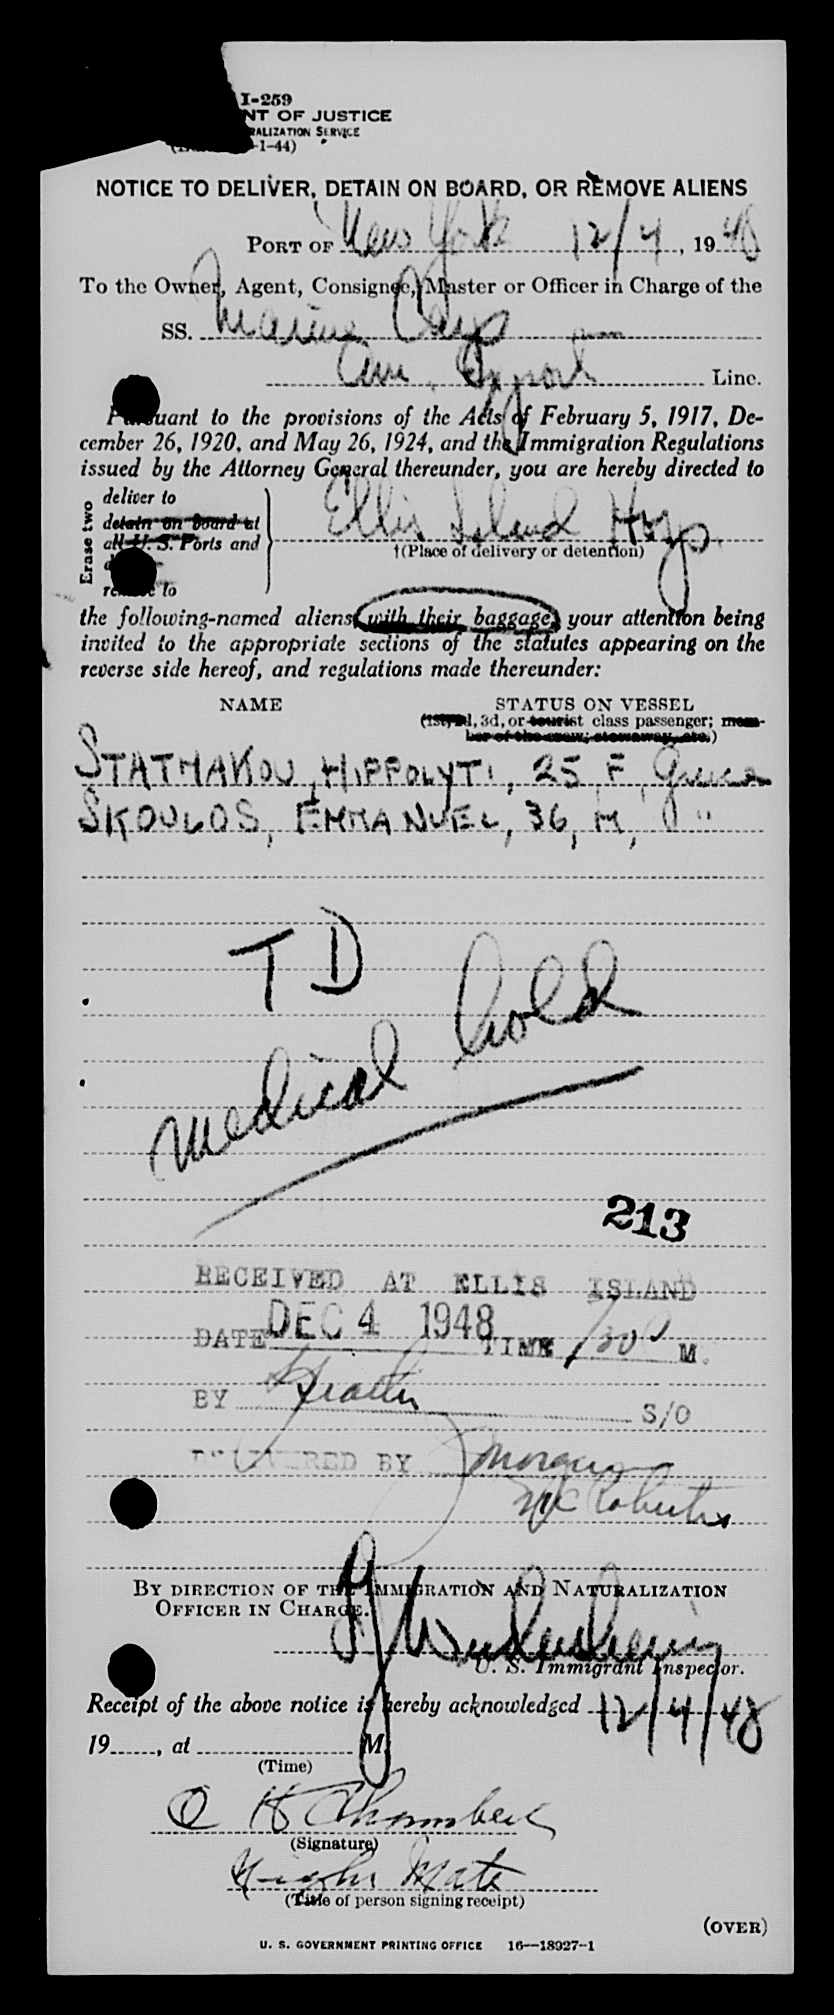 I-259
NT OF JUSTICE
RALIZATION SERVICE
-1-44)
NOTICE TO DELIVER, DETAIN ON BOARD, OR REMOVE ALIENS
PORT OF New York 12/4, 1948
To the Owner, Agent, Consignee, Master or Officer in Charge of the
SS. Marine Carp
Am. Export Line.
Pursuant to the provisions of the Acts of February 5, 1917, De-
cember 26, 1920, and May 26, 1924, and the Immigration Regulations
issued by the Attorney General thereunder, you are hereby directed to
Erase two
deliver to
detain on board at
all U. S. Ports and
remove to
Ellis Island Hosp.
†(Place of delivery or detention)
the following-named aliens, with their baggage, your attention being
invited to the appropriate sections of the statutes appearing on the
reverse side hereof, and regulations made thereunder:
NAME STATUS ON VESSEL
(1st, 2d, 3d, or tourist class passenger; mem-
ber of the crew; stowaway, etc.)
STATHAKOU, HIPPOLYTI, 25, F, Greece
SKOULOS, EMMANUEL, 36, M, "
TD
medical hold
213
RECEIVED AT ELLIS ISLAND
DATE DEC 4 1948 TIME 130 P M.
BY S/O
DELIVERED BY Morgan
McRoberts
BY DIRECTION OF THE IMMIGRATION AND NATURALIZATION
OFFICER IN CHARGE.
U. S. Immigrant Inspector.
Receipt of the above notice is hereby acknowledged 12/4/48
19......, at M
(Time)
O H Chambers
(Signature)
Night Mate
(Title of person signing receipt)
(OVER)
U. S. GOVERNMENT PRINTING OFFICE 16—18927-1